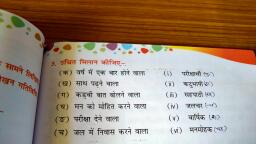 सामने
3. उचित मिलान कीजिए–
(क) वर्ष में एक बार होने वाला (i) परीक्षार्थी
(ख) साथ पढ़ने वाला (ii) कटुभाषी
(ग) कड़वी बात बोलने वाला (iii) सहपाठी
(घ) मन को मोहित करने वाला (iv) जलचर
(ङ) परीक्षा देने वाला (v) वार्षिक
(च) जल में निवास करने वाला (vi) मनमोहक